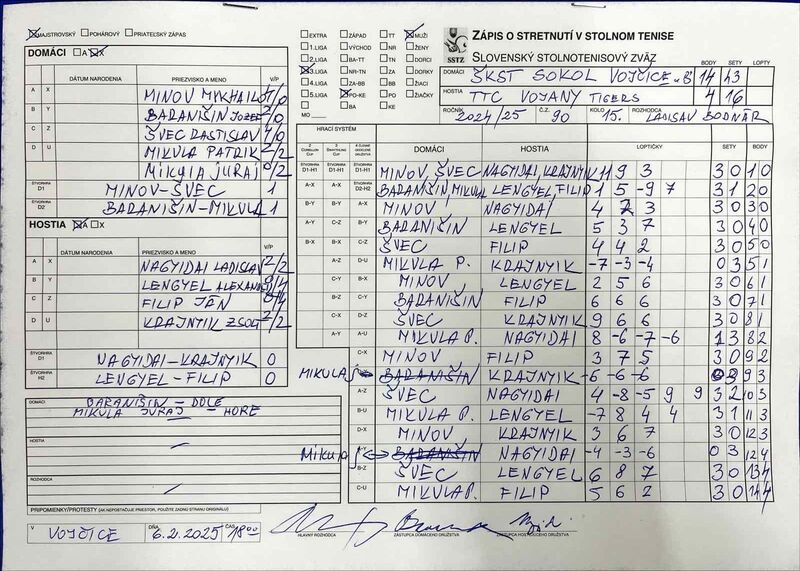 MAJSTROVSKÝ POHÁROVÝ PRIATEĽSKÝ ZÁPAS
DOMÁCI A X
DÁTUM NARODENIA PRIEZVISKO A MENO V/P
A X MINOV MYKHAILO
B Y BARANIŠIN JOZEF
C Z ŠVEC RASTISLAV 4/0
D U MIKULA PATRIK 2/2
MIKULA JURAJ 0/2
ŠTVORHRA D1 MINOV-ŠVEC 1
ŠTVORHRA D2 BARANIŠIN-MIKULA 1
HOSTIA A X
DÁTUM NARODENIA PRIEZVISKO A MENO V/P
A X NAGYIDAI LADISLAV 2/2
B Y LENGYEL ALEXANDER 0/4
C Z FILIP JÁN 0/4
D U KRAJNYIK ZSOLT 2/2
ŠTVORHRA D1 NAGYIDAI-KRAJNYIK 0
ŠTVORHRA H2 LENGYEL-FILIP 0
DOMÁCI BARANIŠIN - DOLE
MIKULA JURAJ - HORE
HOSTIA
ROZHODCA
PRIPOMIENKY/PROTESTY (AK NEPOSTAČUJE PRIESTOR, POUŽITE ZADNÚ STRANU ORIGINÁLU)
V VOJČICE DŇA 6.2.2025 ČAS 18 00
HLAVNÝ ROZHODCA ZÁSTUPCA DOMÁCEHO DRUŽSTVA ZÁSTUPCA HOSŤUJÚCEHO DRUŽSTVA
EXTRA ZÁPAD TT MUŽI
1.LIGA VÝCHOD NR ŽENY
2.LIGA BA-TT TN DORCI
3.LIGA NR-TN ZA DORKY
4.LIGA ZA-BB BB ŽIACI
5.LIGA PO-KE PO ŽIAČKY
MO BA KE
SSTZ
ZÁPIS O STRETNUTÍ V STOLNOM TENISE
SLOVENSKÝ STOLNOTENISOVÝ ZVÄZ
BODY SETY LOPTY
DOMÁCI ŠKST SOKOL VOJČICE "B" 14 43
HOSTIA TTC VOJANY TIGERS 4 16
ROČNÍK 2024/25 Č.Z. 90 KOLO 15. ROZHODCA LADISLAV BODNÁR
HRACÍ SYSTÉM
DOMÁCI HOSTIA LOPTIČKY SETY BODY
D1-H1 D1-H1 D1-H1 MINOV, ŠVEC NAGYIDAI, KRAJNYIK 11 9 3 3 0 1 0
A-X A-X D2-H2 BARANIŠIN, MIKULA LENGYEL FILIP 1 5 -9 7 3 1 2 0
B-Y B-Y A-X MINOV NAGYIDAI 4 7 3 3 0 3 0
A-Y C-Z B-Y BARANIŠIN LENGYEL 5 3 7 3 0 4 0
B-X B-X C-Z ŠVEC FILIP 4 4 2 3 0 5 0
A-Z D-U MIKULA P. KRAJNYIK -7 -3 -4 0 3 5 1
C-Y B-X MINOV LENGYEL 2 5 6 3 0 6 1
B-Z C-Y BARANIŠIN FILIP 6 6 6 3 0 7 1
C-X ŠVEC KRAJNYIK 9 6 6 3 0 8 1
A-Y A-U MIKULA P. NAGYIDAI 8 -6 -7 -6 1 3 8 2
C-X MINOV FILIP 3 7 5 3 0 9 2
MIKULA J BARANIŠIN KRAJNYIK -6 -6 -6 0 3 9 3
A-Z ŠVEC NAGYIDAI 4 -8 -5 9 9 3 2 10 3
B-U MIKULA P. LENGYEL -7 8 4 4 3 1 11 3
D-X MINOV KRAJNYIK 3 6 7 3 0 12 3
MIKULA J BARANIŠIN NAGYIDAI -4 -3 -6 0 3 12 4
B-Z ŠVEC LENGYEL 6 8 7 3 0 13 4
C-U MIKULA P. FILIP 5 6 2 3 0 14 4